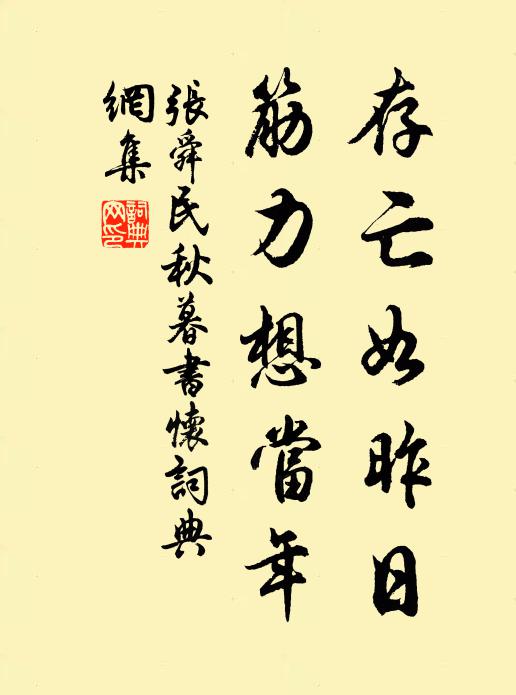 存亡如昨日
筋力想當年
張舜民秋暮書懷詞典
網集
詞典
网印